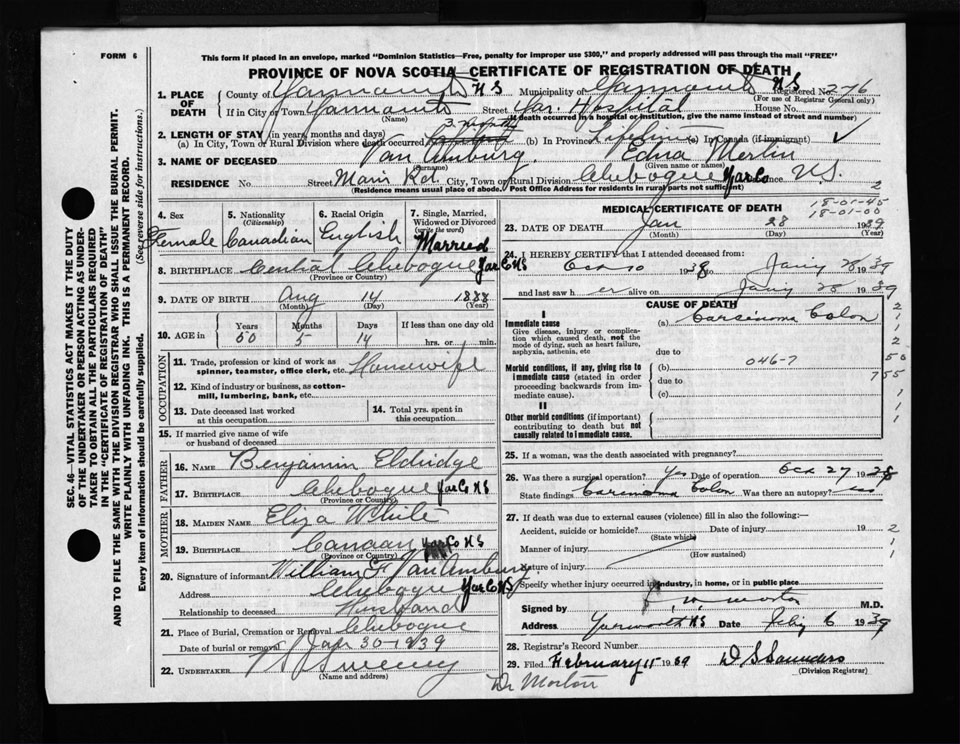 FORM 6
This form if placed in an envelope, marked "Dominion Statistics—Free, penalty for improper use $300," and properly addressed will pass through the mail "FREE"
PROVINCE OF NOVA SCOTIA—CERTIFICATE OF REGISTRATION OF DEATH
1. PLACE OF DEATH
County of Yarmouth N S Municipality of Yarmouth N S Registered No. 276
(For use of Registrar General only)
If in City or Town Yarmouth Street Yar. Hospital House No.
(Name) (If death occurred in a hospital or institution, give the name instead of street and number)
2. LENGTH OF STAY (in years, months and days)
(a) In City, Town or Rural Division where death occurred 3 months (b) In Province Lifetime (c) In Canada (if immigrant) ✓
3. NAME OF DECEASED Van Amburg, Edna Merlin
(Surname) (Given name or names)
RESIDENCE No. Street Main Rd. City, Town or Rural Division Chebogue Yar Co Province N.S. 2
(Residence means usual place of abode. Post Office Address for residents in rural parts not sufficient)
4. Sex
Female
5. Nationality
(Citizenship)
Canadian
6. Racial Origin
English
7. Single, Married, Widowed or Divorced
(write the word)
Married
8. BIRTHPLACE Central Chebogue Yar Co NS
(Province or Country)
9. DATE OF BIRTH Aug 14 1888
(Month) (Day) (Year)
10. AGE in Years Months Days If less than one day old
50 5 14 hrs. or min.
OCCUPATION
11. Trade, profession or kind of work as
spinner, teamster, office clerk, etc. Housewife
12. Kind of industry or business, as cotton-
mill, lumbering, bank, etc.
13. Date deceased last worked
at this occupation
14. Total yrs. spent in
this occupation
15. If married give name of wife
or husband of deceased
FATHER
16. NAME Benjamin Eldridge
17. BIRTHPLACE Chebogue Yar Co NS
(Province or Country)
MOTHER
18. MAIDEN NAME Eliza White
19. BIRTHPLACE Canaan Yar Co NS
(Province or Country)
20. Signature of informant William F Van Amburg
Address Chebogue Yar Co NS
Relationship to deceased Husband
21. Place of Burial, Cremation or Removal Chebogue
Date of burial or removal Jan 30-1939
22. UNDERTAKER Sweeny
(Name and address)
MEDICAL CERTIFICATE OF DEATH
18-01-45
18-01-00
23. DATE OF DEATH Jan 28 1939
(Month) (Day) (Year)
24. I HEREBY CERTIFY that I attended deceased from:
Oct 10 1938 to Jany 28 1939
and last saw h er alive on Jany 28 1939
CAUSE OF DEATH
I
Immediate cause
Give disease, injury or complication which caused death, not the mode of dying, such as heart failure, asphyxia, asthenia, etc
(a) Carsinoma Colon
due to
Morbid conditions, if any, giving rise to immediate cause (stated in order proceeding backwards from immediate cause).
(b) 046-7
due to
(c)
II
Other morbid conditions (if important) contributing to death but not causally related to immediate cause.
2
1
2
50
755
1
1
1
25. If a woman, was the death associated with pregnancy?
26. Was there a surgical operation? Yes Date of operation Oct 27 1938
State findings Carcinoma Colon Was there an autopsy? no
27. If death was due to external causes (violence) fill in also the following:—
Accident, suicide or homicide? Date of injury 19
(State which)
Manner of injury
(How sustained)
Nature of injury
2
1
1
Specify whether injury occurred in industry, in home, or in public place
Signed by Morton M.D.
Address Yarmouth NS Date Feby 6 1939
28. Registrar's Record Number
29. Filed February 11 1939 D S Saunders
(Division Registrar)
Dr Morton
SEC. 46—VITAL STATISTICS ACT MAKES IT THE DUTY
OF THE UNDERTAKER OR PERSON ACTING AS UNDER-
TAKER TO OBTAIN ALL THE PARTICULARS REQUIRED
IN THE "CERTIFICATE OF REGISTRATION OF DEATH"
AND TO FILE THE SAME WITH THE DIVISION REGISTRAR WHO SHALL ISSUE THE BURIAL PERMIT.
WRITE PLAINLY WITH UNFADING INK. THIS IS A PERMANENT RECORD.
Every item of information should be carefully supplied. (See reverse side for instructions.)